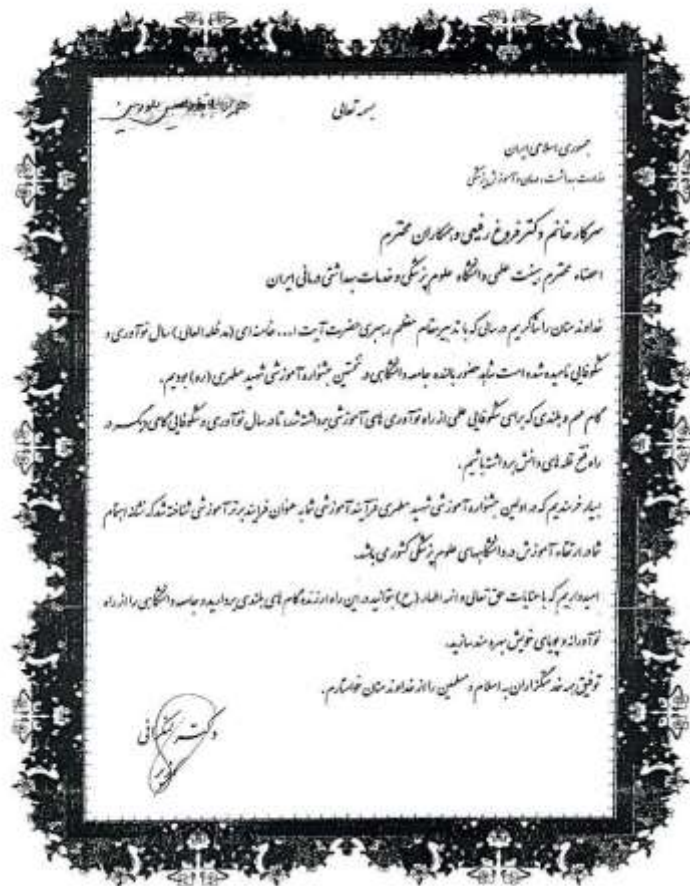 بسمه تعالی
جمهوری اسلامی ایران
وزارت بهداشت، درمان و آموزش پزشکی
سرکار خانم دکتر فروغ رفیعی و همکاران محترم
اعضاء محترم هیئت علمی دانشگاه علوم پزشکی و خدمات بهداشتی درمانی ایران
خداوند منان را شاکریم در سالی که با تدبیر مقام معظم رهبری حضرت آیت ا... خامنه ای (مد ظله العالی) سال نوآوری و
شکوفایی نامیده شده است شاهد حضور بالنده جامعه دانشگاهی در نخستین جشنواره آموزشی شهید مطهری (ره) بودیم.
گام مهم و بلندی که برای شکوفایی علمی از راه نوآوری های آموزشی برداشته شد، تا در سال نوآوری و شکوفایی گامی دیگر در
راه فتح قله های دانش برداشته باشیم.
بسیار خرسندیم که در اولین جشنواره آموزشی شهید مطهری فرآیند آموزشی شما به عنوان فرایند برتر آموزشی شناخته شد که نشانه اهتمام
شما در ارتقاء آموزش در دانشگاههای علوم پزشکی کشور می باشد.
امیدواریم که با عنایات حق تعالی و ائمه اطهار (ع) بتوانید در این راه ارزنده گام های بلندی بردارید و جامعه دانشگاهی را از راه
نوآورانه و پویای خویش بهره مند سازید.
توفیق همه خدمتگزاران به اسلام و مسلمین را از خداوند منان خواستارم.
دکتر لنکرانی